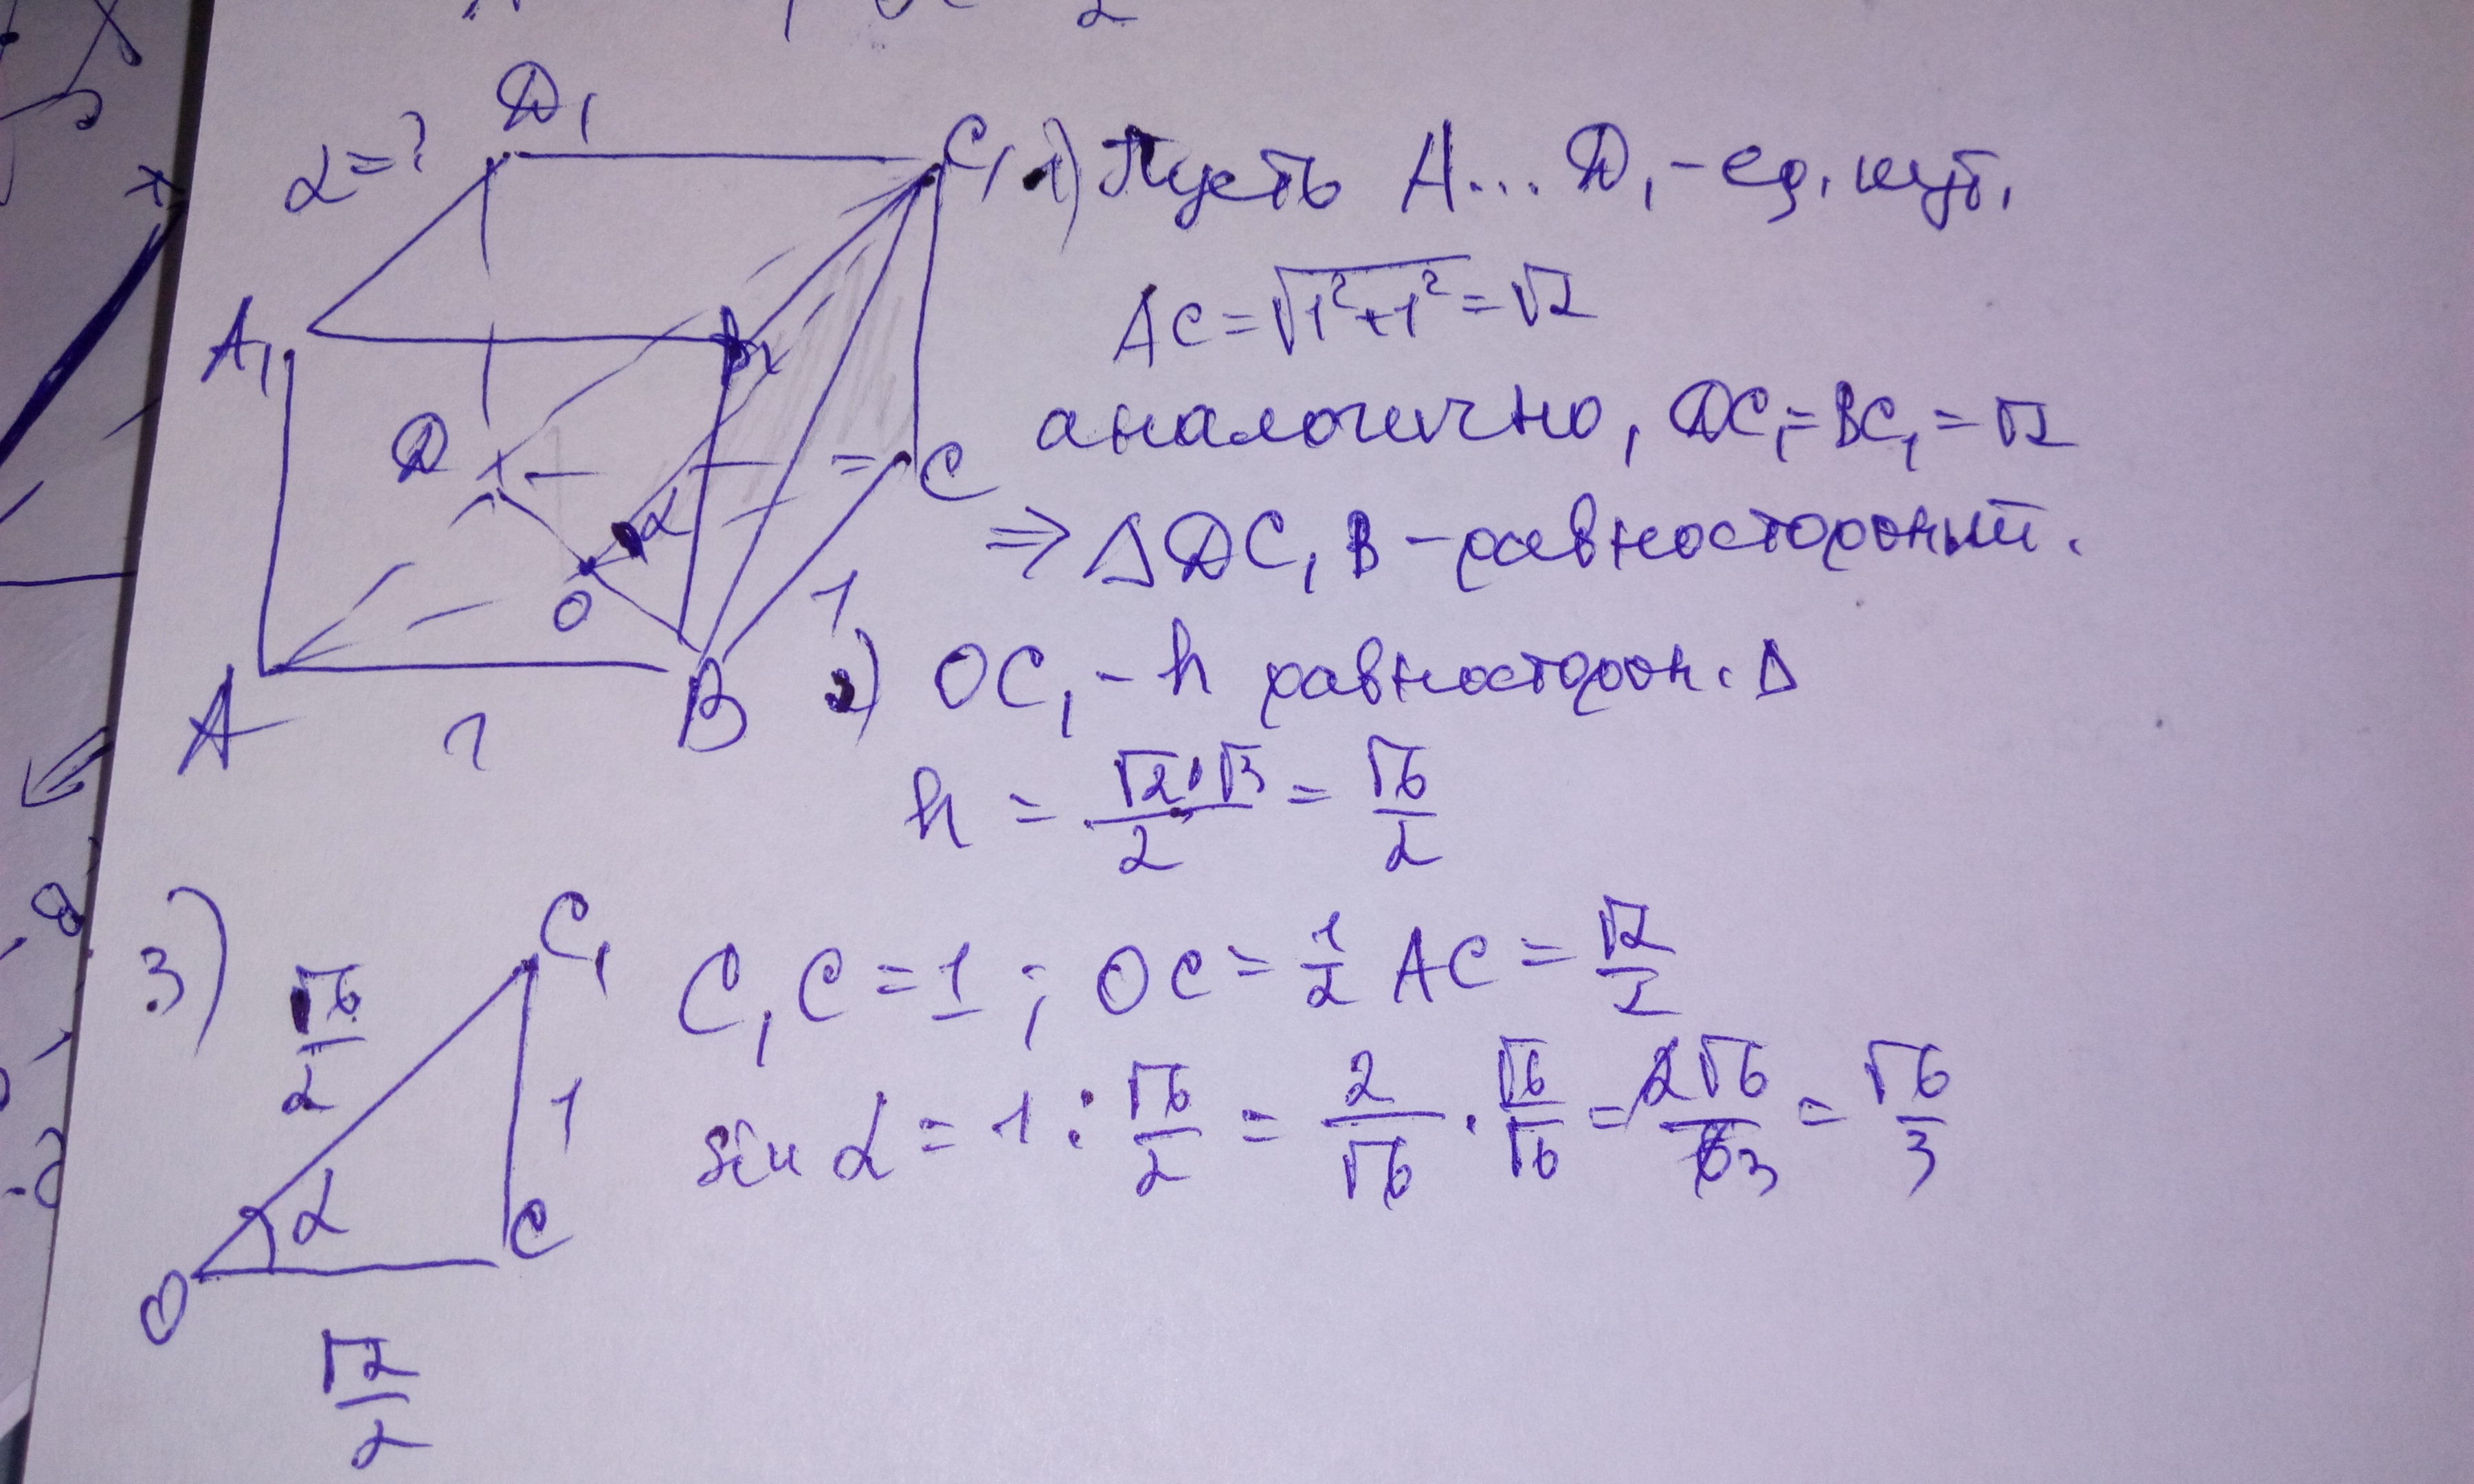 α=?
D₁
C₁
A₁
B₁
D
C
α
O
1
A
B
1
1) Пусть A...D₁ - ед. куб.
AC = √1²+1² = √2
аналогично, DC₁ = BC₁ = √2
⇒ Δ DC₁B - равносторонний.
2) OC₁ - h равносторон. Δ
h = √2·√3/2 = √6/2
3)
C₁
√6/2
1
α
O
C
√2/2
C₁C = 1; OC = 1/2 AC = √2/2
sin α = 1 : √6/2 = 2/√6 · √6/√6 = 2√6/6 3 = √6/3